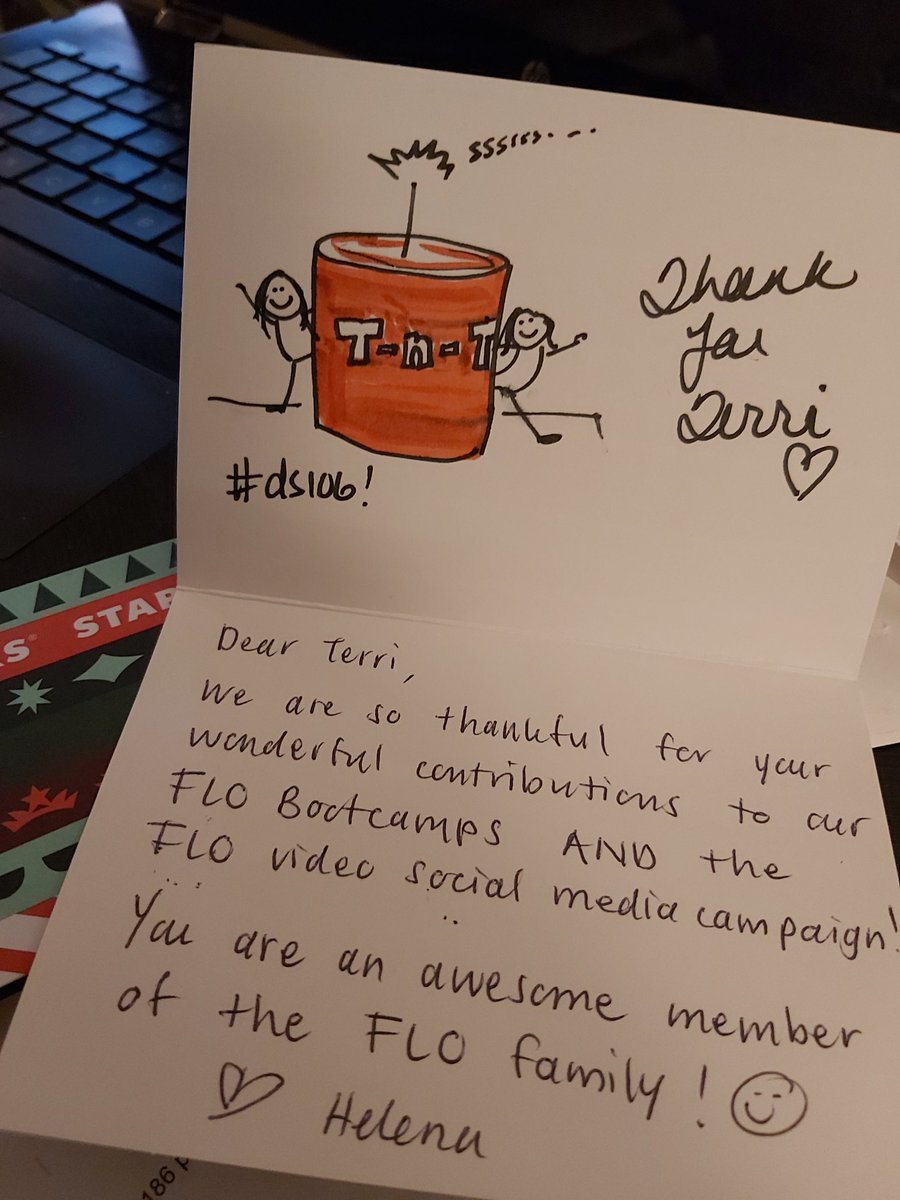 sssss...
T-n-T
Thank
You
Terri
#ds106!
STAR
Dear Terri,
We are so thankful for your
wonderful contributions to our
FLO Bootcamps AND the
FLO video social media campaign!
You are an awesome member
of the FLO family!
Helena
186 p